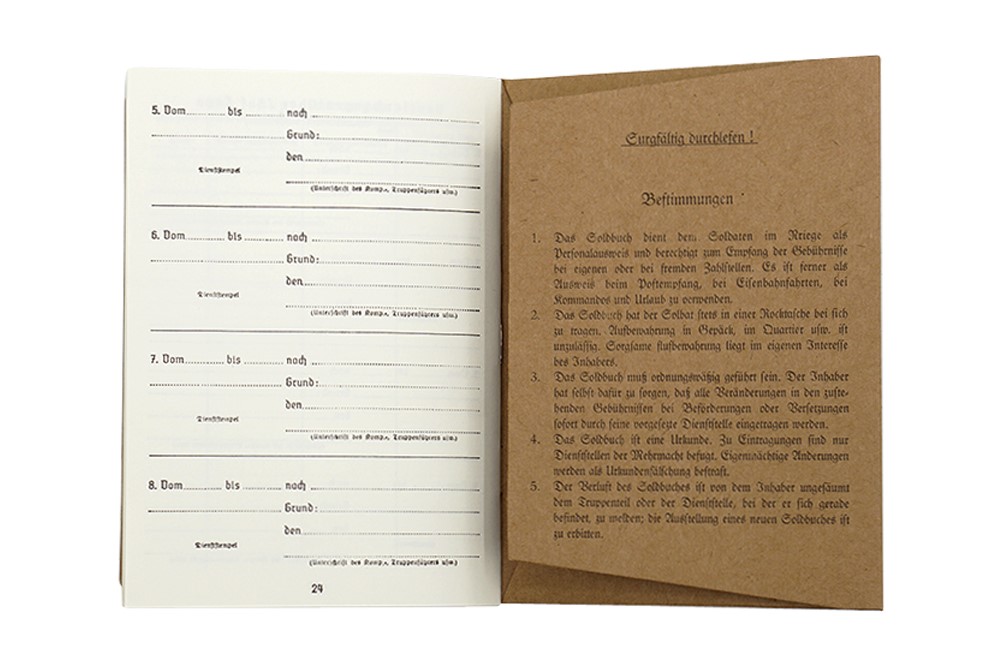 5. Vom bis nach
Grund:
den
Dienststempel
(Unterschrift des Komp.-, Truppenführers usw.)
6. Vom bis nach
Grund:
den
Dienststempel
(Unterschrift des Komp.-, Truppenführers usw.)
7. Vom bis nach
Grund:
den
Dienststempel
(Unterschrift des Komp.-, Truppenführers usw.)
8. Vom bis nach
Grund:
den
Dienststempel
(Unterschrift des Komp.-, Truppenführers usw.)
24
Surgfältig durchlesen !
Bestimmungen
1. Das Soldbuch dient dem Soldaten im Kriege als
Personalausweis und berechtigt zum Empfang der Gebührnisse
bei eigenen oder bei fremden Zahlstellen. Es ist ferner als
Ausweis beim Postempfang, bei Eisenbahnfahrten, bei
Kommandos und Urlaub zu verwenden.
2. Das Soldbuch hat der Solbat stets in einer Rocktasche bei sich
zu tragen. Aufbewahrung in Gepäck, im Quartier usw. ist
unzulässig. Sorgsame flufbewahrung liegt im eigenen Interesse
des Inhabers.
3. Das Soldbuch muß ordnungswäßig geführt sein. Der Inhaber
hat selbst dafür zu sorgen, daß alle Veränderungen in den zuste-
henden Gebührnissen bei Beförderungen oder Versetzungen
sofort durch seine vorgesetzte Dienststelle eingetragen werden.
4. Das Soldbuch ist eine Urkunde. Zu Eintragungen sind nur
Dienststellen der Mehrmacht befugt. Eigenwächtige Änderungen
werden als Urkundenfälschung bestraft.
5. Der Verlust des Soldbuches ist von dem Inhaber ungesäumt
dem Truppenteil oder der Dienststelle, bei der er sich gerade
befindet, zu welden; die Ausstellung eines neuen Soldbuches ist
zu erbitten.